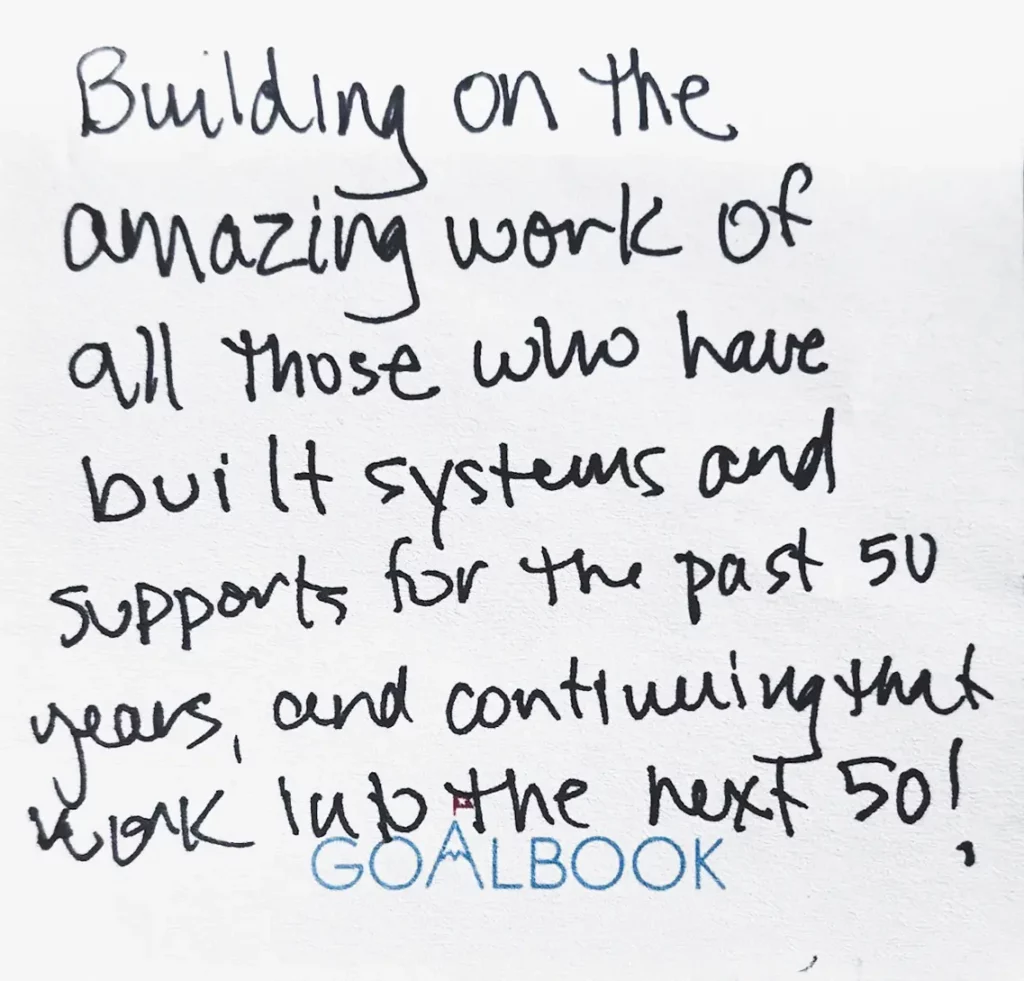 Building on the
amazing work of
all those who have
built systems and
supports for the past 50
years, and continuing that
work into the next 50!
GOALBOOK